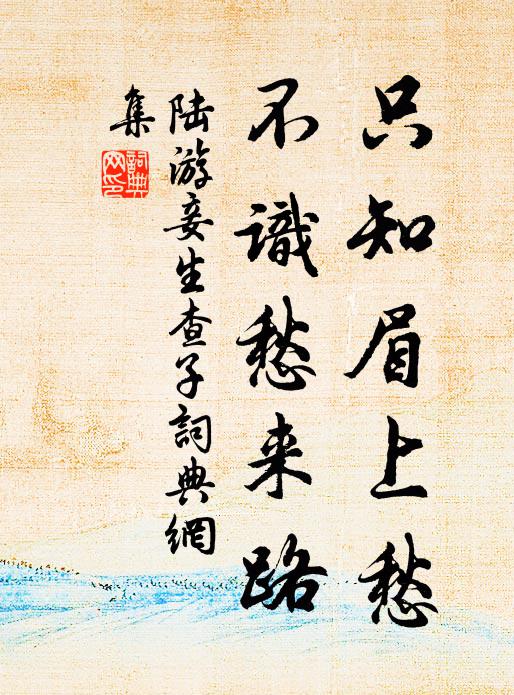 只知眉上愁
不識愁来路
陆游妾生查子詞典網
集
詞典网印